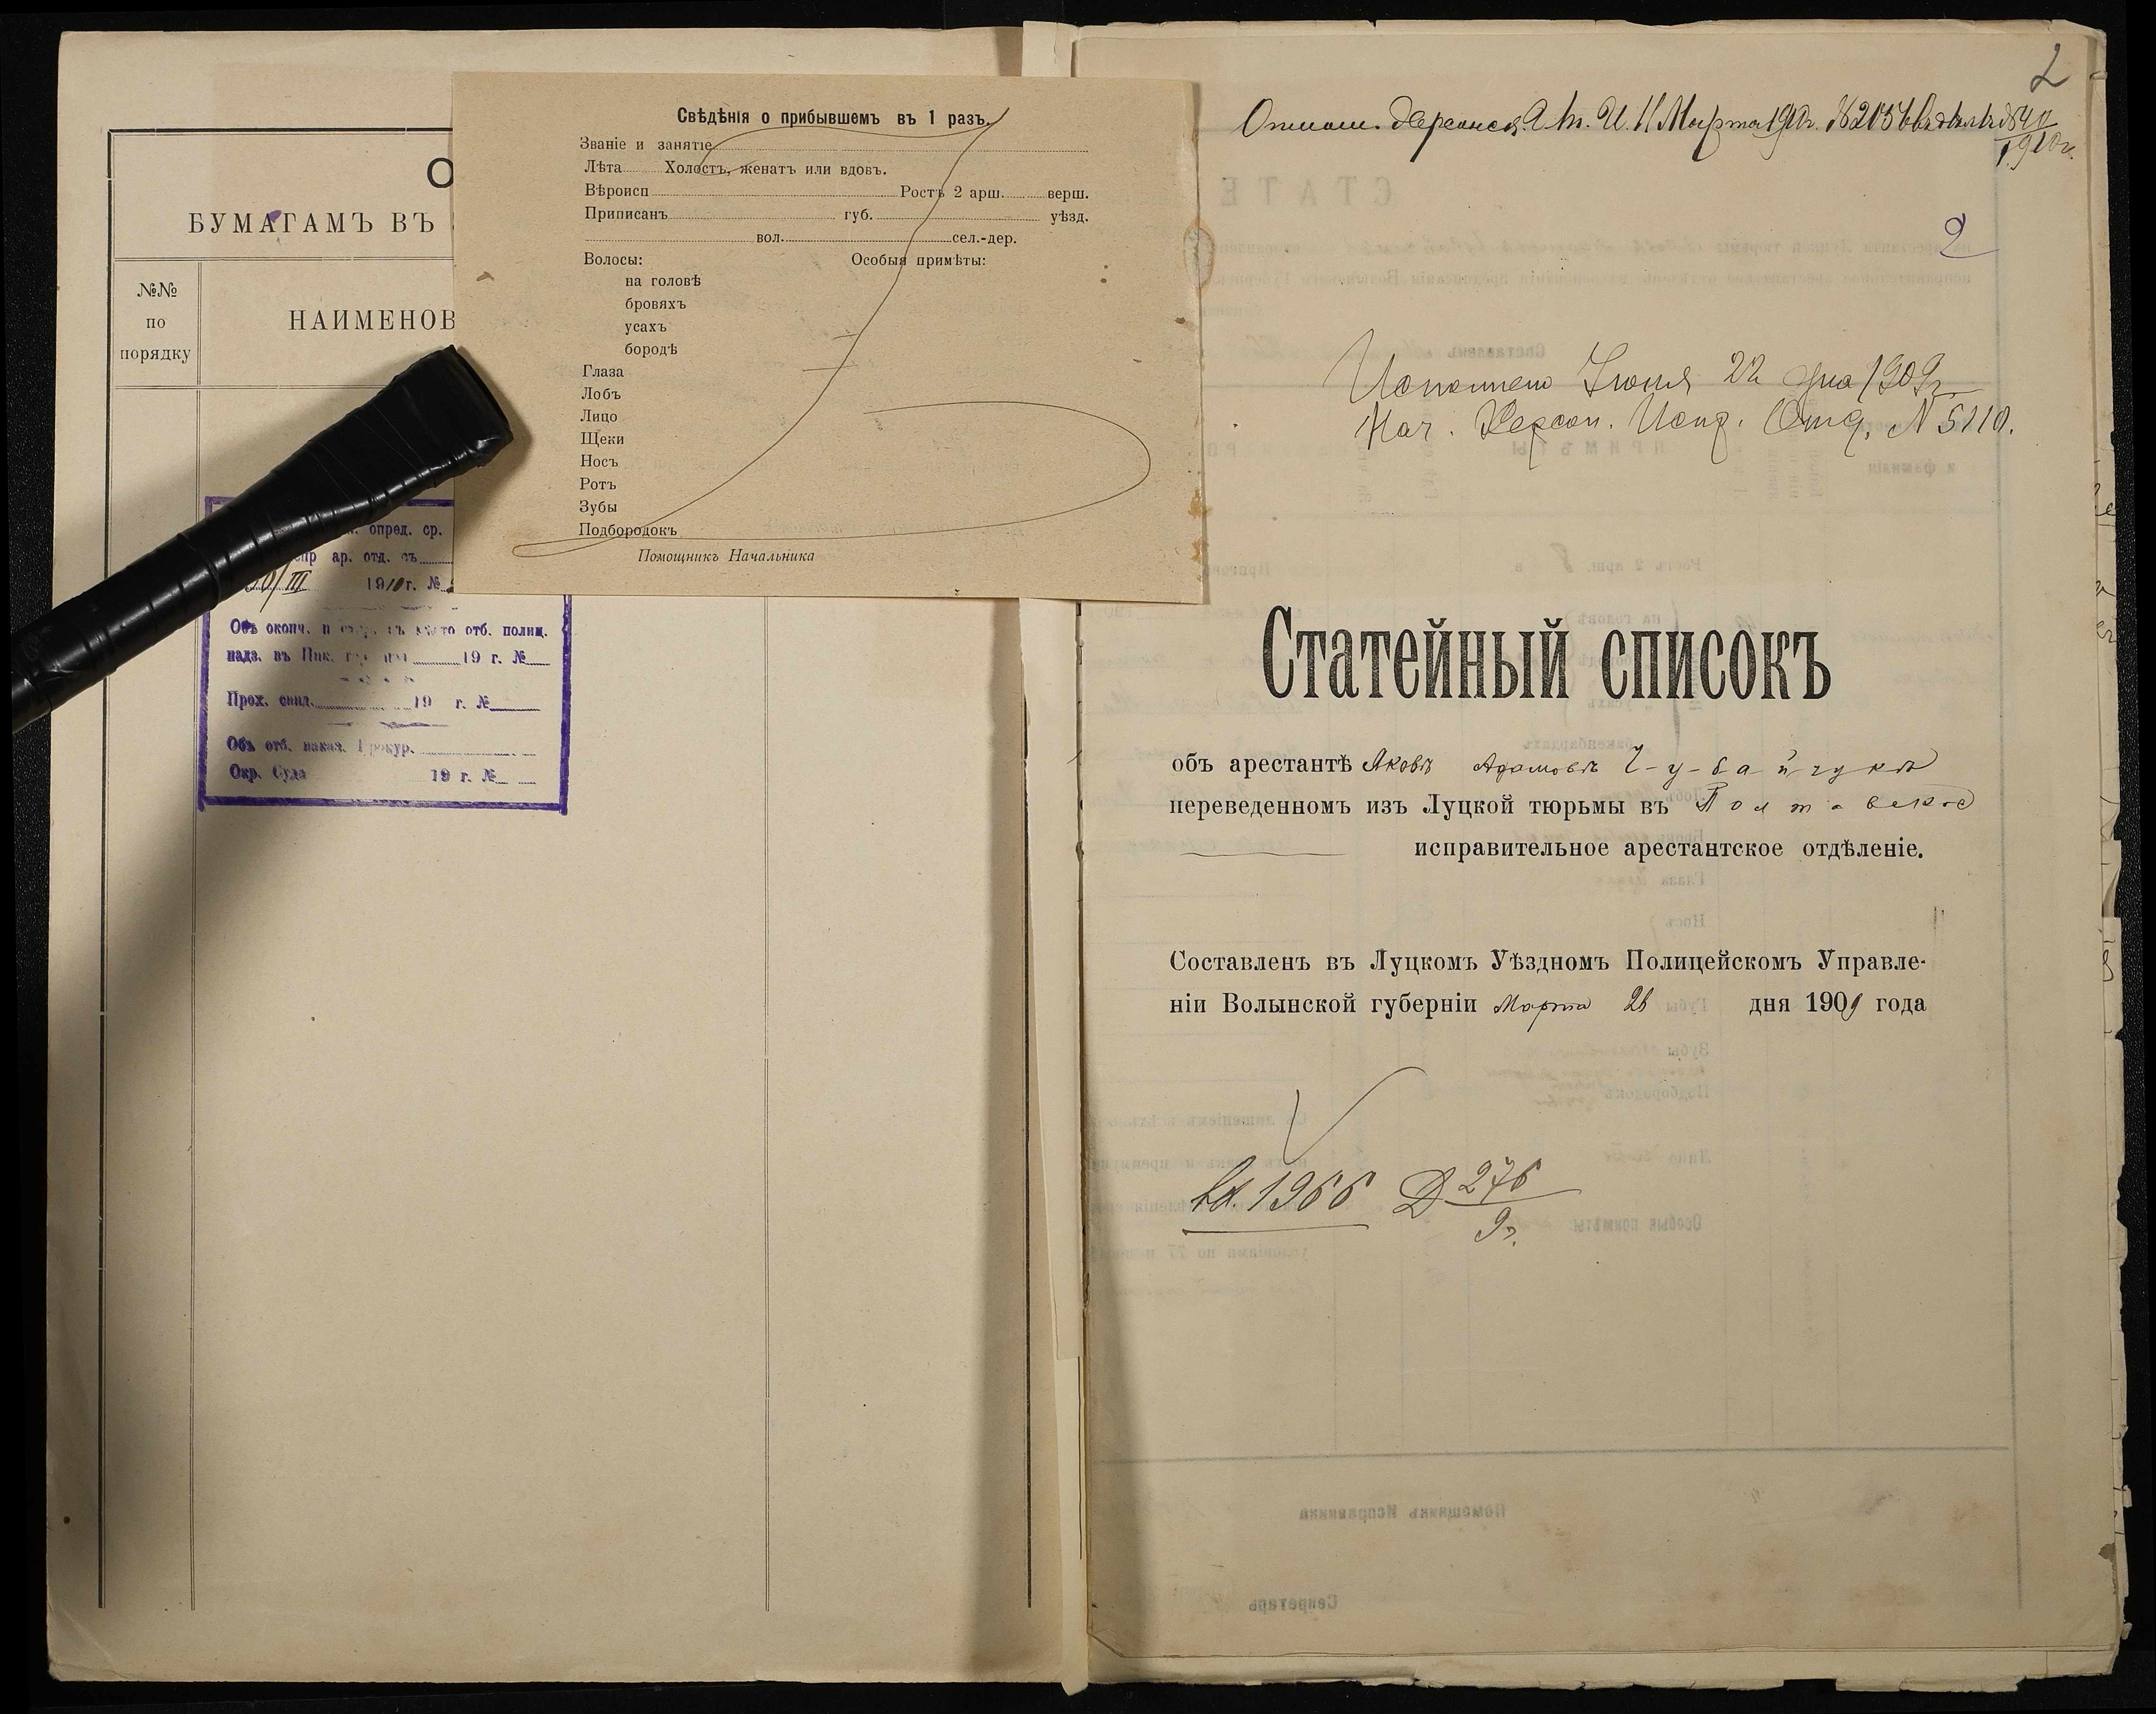 О
БУМАГАМЪ ВЪ
№№
по
порядку
НАИМЕНОВ
опред. ср.
ар. отд. съ
III 1910 г. №
Объ оконч. отб. полиц.
надз. въ 19 г. №
Прох. свид. 19 г. №
Объ отб. наказ. Прокур.
Окр. Суда 19 г. №
Свѣдѣнія о прибывшемъ въ 1 разъ.
Званіе и занятіе
Лѣта Холостъ, женатъ или вдовъ.
Вѣроисп Ростъ 2 арш. верш.
Приписанъ губ. уѣзд.
вол. сел.-дер.
Волосы: Особыя примѣты:
на головѣ
бровяхъ
усахъ
бородѣ
Глаза
Лобъ
Лицо
Щеки
Носъ
Ротъ
Зубы
Подбородокъ
Помощникъ Начальника
2
Отнош. Херсонск. 11 Марта 1910 г.
1910 г.
2
Исполнено Іюня 22 дня 1909 г.
Нач. Херсон. Испр. Отд. N 5210.
Статейный списокъ
объ арестантѣ Яковѣ Адамовѣ Ч-у-б-а-й-чукѣ
переведенномъ изъ Луцкой тюрьмы въ Полтавское
исправительное арестантское отдѣленіе.
Составленъ въ Луцкомъ Уѣздномъ Полицейскомъ Управле-
ніи Волынской губерніи Марта 26 дня 1909 года
1966 Д 276
9 г.